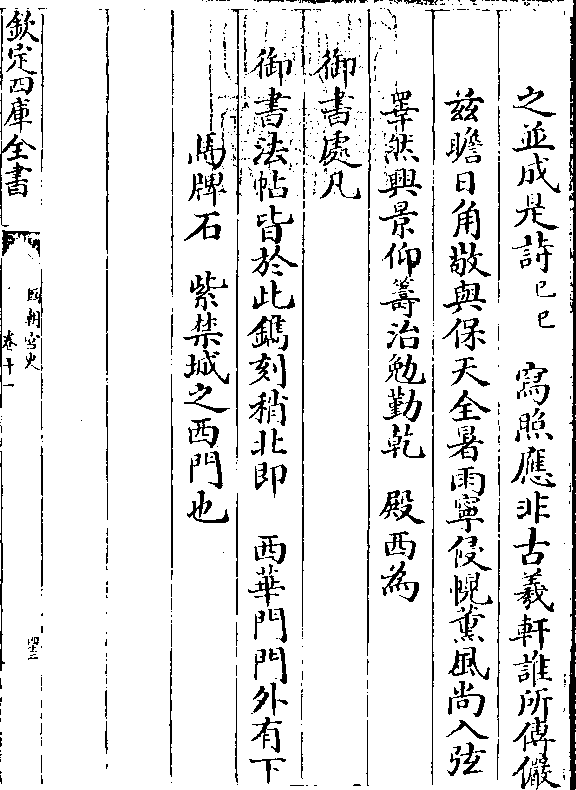 之並成是詩己巳　寫照應非古羲軒誰所傳儼
茲瞻日角敬與保天全暑雨寧侵幌薰風尚入弦
睪然興景仰籌治勉勤乾　殿西為
御書處凡
御書法帖皆於此鐫刻稍北即　西華門門外有下
馬牌石　紫禁城之西門也
欽定四庫全書
國朝宮史
卷十一